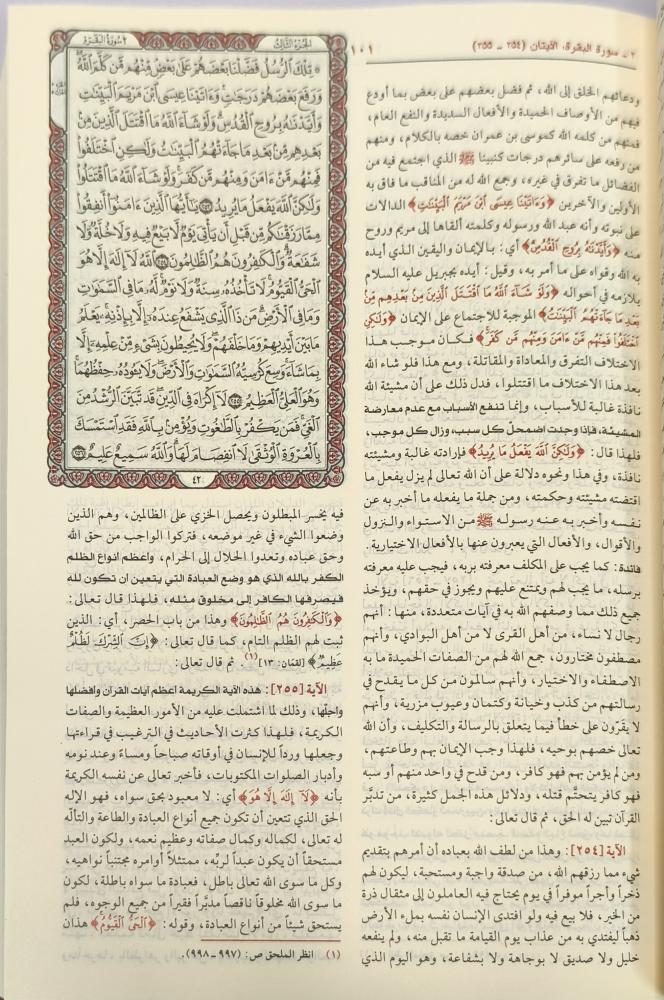 ٢ - سورة البقرة، الآيتان (٢٥٤ - ٢٥٥)
١٠١
ودعائهم الخلق إلى الله، ثم فضل بعضهم على بعض بما أودع
فيهم من الأوصاف الحميدة والأفعال السديدة والنفع العام،
فمنهم من كلمه الله كموسى بن عمران خصه بالكلام، ومنهم
من رفعه على سائرهم درجات كنبينا ﷺ الذي اجتمع فيه من
الفضائل ما تفرق في غيره، وجمع الله له من المناقب ما فاق به
الأولين والآخرين ﴿وَءَاتَيْنَا عِيسَى ابْنَ مَرْيَمَ الْبَيِّنَٰتِ﴾ الدالات
على نبوته وأنه عبد الله ورسوله وكلمته ألقاها إلى مريم وروح
منه ﴿وَأَيَّدْنَٰهُ بِرُوحِ الْقُدُسِ﴾ أي: بالإيمان واليقين الذي أيده
به الله وقواه على ما أمر به، وقيل: أيده بجبريل عليه السلام
يلازمه في أحواله ﴿وَلَوْ شَاءَ اللَّهُ مَا اقْتَتَلَ الَّذِينَ مِنْ بَعْدِهِم مِّنْ
بَعْدِ مَا جَاءَتْهُمُ الْبَيِّنَٰتُ﴾ الموجبة للاجتماع على الإيمان ﴿وَلَٰكِنِ
اخْتَلَفُوا فَمِنْهُم مَّنْ ءَامَنَ وَمِنْهُم مَّن كَفَرَ﴾ فكان موجب هذا
الاختلاف التفرق والمعاداة والمقاتلة، ومع هذا فلو شاء الله
بعد هذا الاختلاف ما اقتتلوا، فدل ذلك على أن مشيئة الله
نافذة غالبة للأسباب، وإنما تنفع الأسباب مع عدم معارضة
المشيئة، فإذا وجدت اضمحلّ كل سبب، وزال كل موجب،
فلهذا قال: ﴿وَلَٰكِنَّ اللَّهَ يَفْعَلُ مَا يُرِيدُ﴾ فإرادته غالبة ومشيئته
نافذة، وفي هذا ونحوه دلالة على أن الله تعالى لم يزل يفعل ما
اقتضته مشيئته وحكمته، ومن جملة ما يفعله ما أخبر به عن
نفسه وأخبر به عنه رسوله ﷺ من الاستواء والنزول
والأقوال، والأفعال التي يعبرون عنها بالأفعال الاختيارية.
فائدة: كما يجب على المكلف معرفته بربه، فيجب عليه معرفته
برسله، ما يجب لهم ويمتنع عليهم ويجوز في حقهم، ويؤخذ
جميع ذلك مما وصفهم الله به في آيات متعددة، منها: أنهم
رجال لا نساء، من أهل القرى لا من أهل البوادي، وأنهم
مصطفون مختارون، جمع الله لهم من الصفات الحميدة ما به
الاصطفاء والاختيار، وأنهم سالمون من كل ما يقدح في
رسالتهم من كذب وخيانة وكتمان وعيوب مزرية، وأنهم
لا يقرّون على خطأ فيما يتعلق بالرسالة والتكليف، وأن الله
تعالى خصهم بوحيه، فلهذا وجب الإيمان بهم وطاعتهم،
ومن لم يؤمن بهم فهو كافر، ومن قدح في واحد منهم أو سبه
فهو كافر يتحتَّم قتله، ودلائل هذه الجمل كثيرة، من تدبَّر
القرآن تبين له الحق، ثم قال تعالى:
الآية [٢٥٤]: وهذا من لطف الله بعباده أن أمرهم بتقديم
شيء مما رزقهم الله، من صدقة واجبة ومستحبة، ليكون لهم
ذخراً وأجراً موفراً في يوم يحتاج فيه العاملون إلى مثقال ذرة
من الخير، فلا بيع فيه ولو افتدى الإنسان نفسه بملء الأرض
ذهباً ليفتدي به من عذاب يوم القيامة ما تقبل منه، ولم ينفعه
خليل ولا صديق لا بوجاهة ولا بشفاعة، وهو اليوم الذي
الجزء الثالث
٢ سورة البقرة
۞ تِلْكَ الرُّسُلُ فَضَّلْنَا بَعْضَهُمْ عَلَىٰ بَعْضٍ مِّنْهُم مَّن كَلَّمَ اللَّهُ
وَرَفَعَ بَعْضَهُمْ دَرَجَٰتٍ وَءَاتَيْنَا عِيسَى ابْنَ مَرْيَمَ الْبَيِّنَٰتِ
وَأَيَّدْنَٰهُ بِرُوحِ الْقُدُسِ وَلَوْ شَاءَ اللَّهُ مَا اقْتَتَلَ الَّذِينَ مِنْ
بَعْدِهِم مِّنْ بَعْدِ مَا جَاءَتْهُمُ الْبَيِّنَٰتُ وَلَٰكِنِ اخْتَلَفُوا
فَمِنْهُم مَّنْ ءَامَنَ وَمِنْهُم مَّن كَفَرَ وَلَوْ شَاءَ اللَّهُ مَا اقْتَتَلُوا
وَلَٰكِنَّ اللَّهَ يَفْعَلُ مَا يُرِيدُ ۝٢٥٣ يَٰأَيُّهَا الَّذِينَ ءَامَنُوا أَنفِقُوا
مِمَّا رَزَقْنَٰكُم مِّن قَبْلِ أَن يَأْتِيَ يَوْمٌ لَّا بَيْعٌ فِيهِ وَلَا خُلَّةٌ وَلَا
شَفَٰعَةٌ وَالْكَٰفِرُونَ هُمُ الظَّٰلِمُونَ ۝٢٥٤ اللَّهُ لَا إِلَٰهَ إِلَّا هُوَ
الْحَيُّ الْقَيُّومُ لَا تَأْخُذُهُ سِنَةٌ وَلَا نَوْمٌ لَّهُ مَا فِي السَّمَٰوَٰتِ
وَمَا فِي الْأَرْضِ مَن ذَا الَّذِي يَشْفَعُ عِندَهُ إِلَّا بِإِذْنِهِ يَعْلَمُ
مَا بَيْنَ أَيْدِيهِمْ وَمَا خَلْفَهُمْ وَلَا يُحِيطُونَ بِشَيْءٍ مِّنْ عِلْمِهِ إِلَّا
بِمَا شَاءَ وَسِعَ كُرْسِيُّهُ السَّمَٰوَٰتِ وَالْأَرْضَ وَلَا يَـُٔودُهُ حِفْظُهُمَا
وَهُوَ الْعَلِيُّ الْعَظِيمُ ۝٢٥٥ لَا إِكْرَاهَ فِي الدِّينِ قَد تَّبَيَّنَ الرُّشْدُ مِنَ
الْغَيِّ فَمَن يَكْفُرْ بِالطَّٰغُوتِ وَيُؤْمِنْ بِاللَّهِ فَقَدِ اسْتَمْسَكَ
بِالْعُرْوَةِ الْوُثْقَىٰ لَا انفِصَامَ لَهَا وَاللَّهُ سَمِيعٌ عَلِيمٌ ۝٢٥٦
٤٢
فيه يخسر المبطلون ويحصل الخزي على الظالمين، وهم الذين
وضعوا الشيء في غير موضعه، فتركوا الواجب من حق الله
وحق عباده وتعدوا الحلال إلى الحرام، وأعظم أنواع الظلم
الكفر بالله الذي هو وضع العبادة التي يتعين أن تكون لله
فيصرفها الكافر إلى مخلوق مثله، فلهذا قال تعالى:
﴿وَالْكَٰفِرُونَ هُمُ الظَّٰلِمُونَ﴾ وهذا من باب الحصر، أي: الذين
ثبت لهم الظلم التام، كما قال تعالى: ﴿إِنَّ الشِّرْكَ لَظُلْمٌ
عَظِيمٌ﴾ [لقمان: ١٣] (١). ثم قال تعالى:
الآية [٢٥٥]: هذه الآية الكريمة أعظم آيات القرآن وأفضلها
وأجلّها، وذلك لما اشتملت عليه من الأمور العظيمة والصفات
الكريمة، فلهذا كثرت الأحاديث في الترغيب في قراءتها
وجعلها ورداً للإنسان في أوقاته صباحاً ومساءً وعند نومه
وأدبار الصلوات المكتوبات، فأخبر تعالى عن نفسه الكريمة
بأنه ﴿لَا إِلَٰهَ إِلَّا هُوَ﴾ أي: لا معبود بحق سواه، فهو الإله
الحق الذي تتعين أن تكون جميع أنواع العبادة والطاعة والتألّه
له تعالى، لكماله وكمال صفاته وعظيم نعمه، ولكون العبد
مستحقاً أن يكون عبداً لربّه، ممتثلاً أوامره مجتنباً نواهيه،
وكل ما سوى الله تعالى باطل، فعبادة ما سواه باطلة، لكون
ما سوى الله مخلوقاً ناقصاً مدبَّراً فقيراً من جميع الوجوه، فلم
يستحق شيئاً من أنواع العبادة، وقوله: ﴿الْحَيُّ الْقَيُّومُ﴾ هذان
(١) انظر الملحق ص: (٩٩٧-٩٩٨).